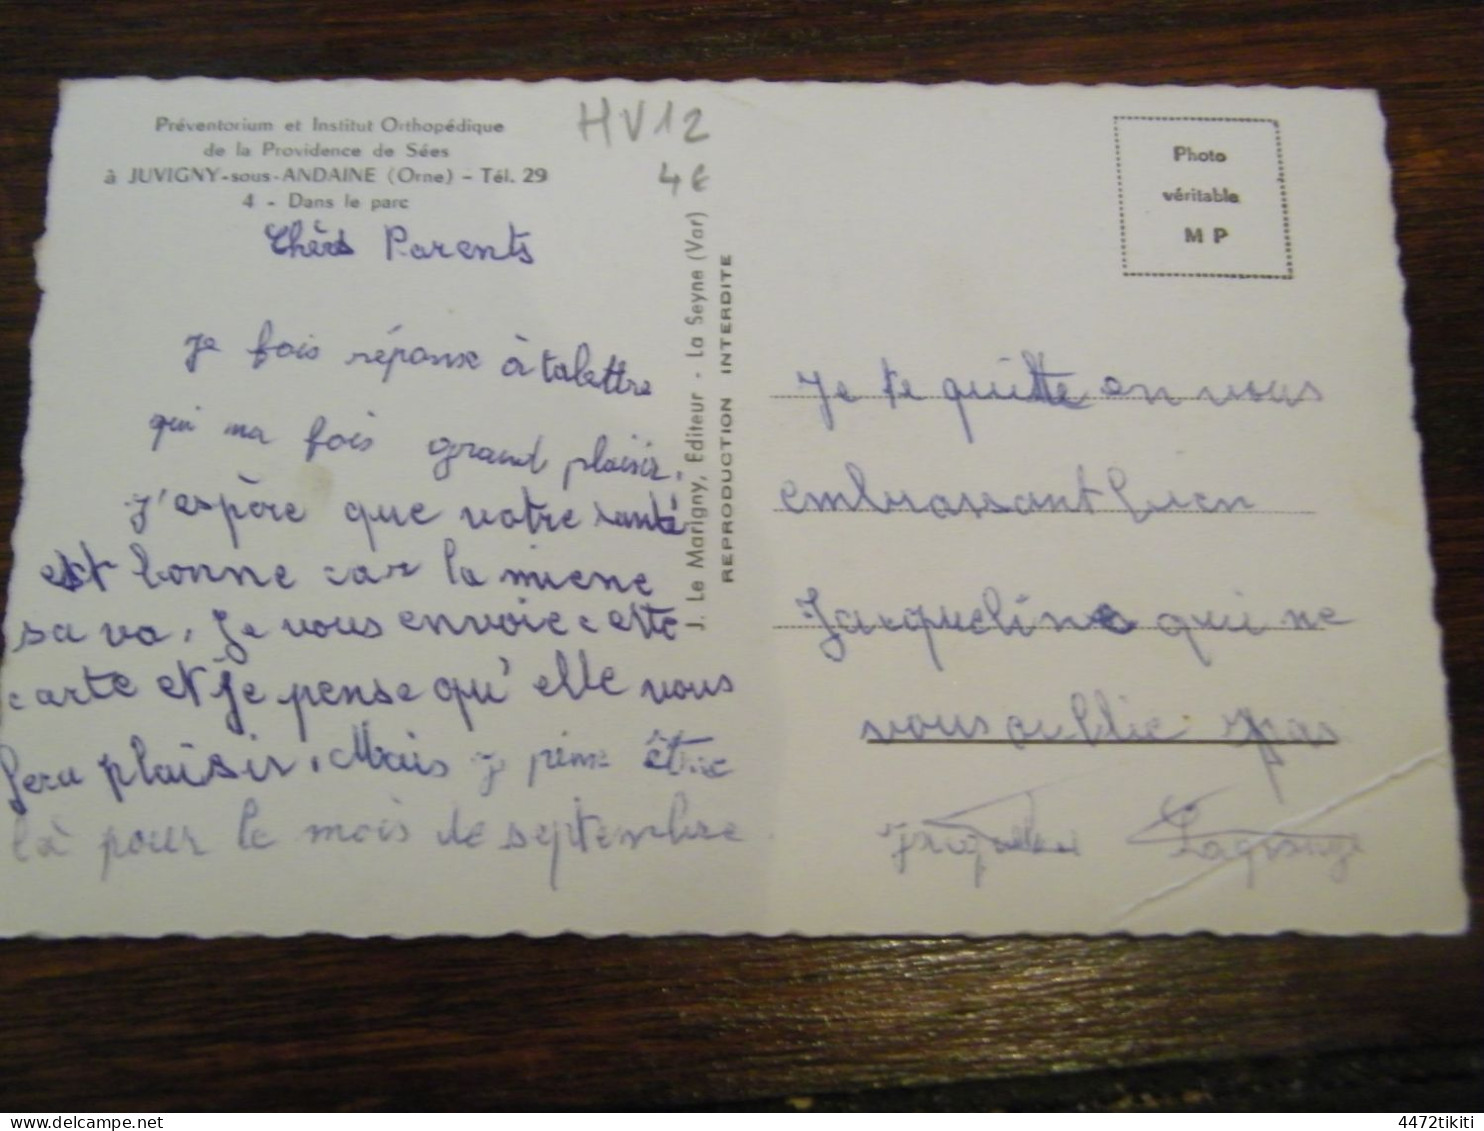 Préventorium et Institut Orthopédique
de la Providence de Sées
à JUVIGNY-sous-ANDAINE (Orne) - Tél. 29
4 - Dans le parc
HV12
4€
Chèrs Parents
Je fais réponse à ta lettre
qui ma fois grand plaisir.
J'espère que votre santé
est bonne car la miene
sa va, Je vous envoie cette
carte et je pense qu'elle vous
fera plaisir, Mais je pense être
là pour le mois de septembre
J. Le Marigny, Editeur - La Seyne (Var)
REPRODUCTION INTERDITE
Photo
véritable
M P
Je te quitte en vous
embrassant bien
Jacqueline qui ne
vous oublie pas
Lagrange
4472tikiti